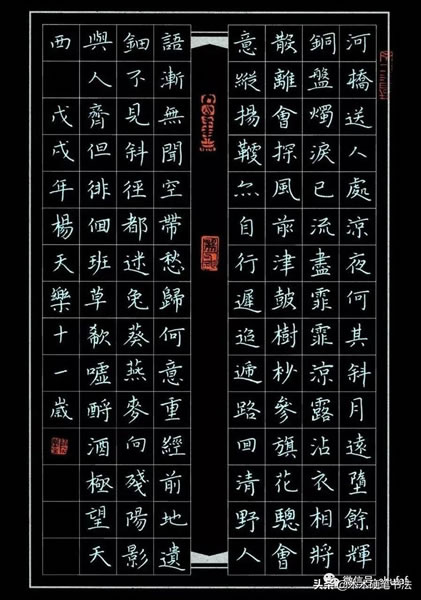 河橋送人處涼夜何其斜月遠墮餘輝
銅盤燭淚已流盡霏霏涼露沾衣相將
散離會探風前津鼓樹杪參旗花驄會
意縱揚鞭亦自行遲迢遞路回清野人
語漸無聞空帶愁歸何意重經前地遺
鈿不見斜徑都迷兔葵燕麥向殘陽影
與人齊但徘徊班草欷噓酹酒極望天
西戊戌年楊天樂十一歲
微信号
头条 硬笔书法